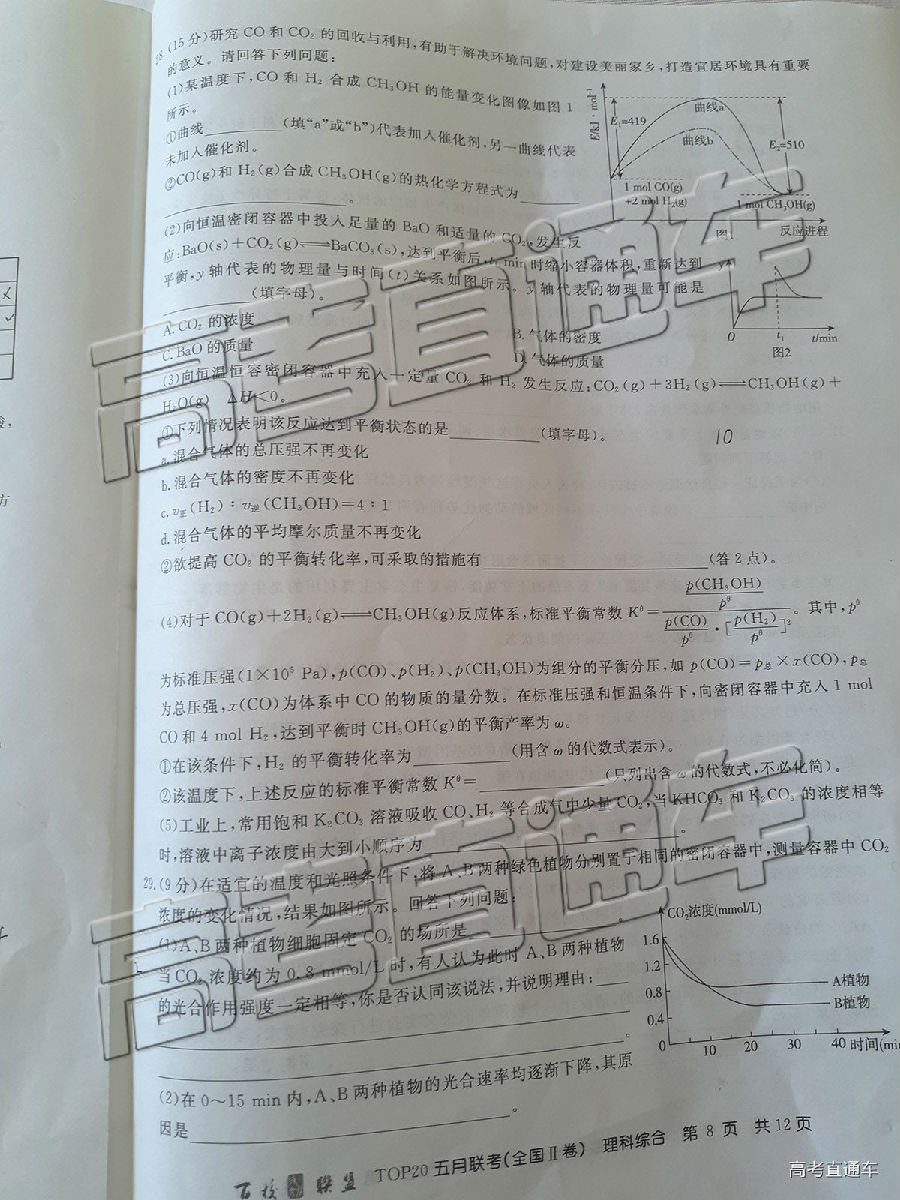 28.(15分)研究CO和CO₂的回收与利用,有助于解决环境问题,对建设美丽家乡,打造宜居环境具有重要
的意义。请回答下列问题:
(1)某温度下,CO 和 H₂ 合成 CH₃OH 的能量变化图像如图1
所示。
①曲线________(填“a”或“b”)代表加入催化剂,另一曲线代表
未加入催化剂。
②CO(g)和H₂(g)合成CH₃OH(g)的热化学方程式为________
________。
E/kJ·mol⁻¹
E₁=419
曲线a
曲线b
E₂=510
1 mol CO(g)
+2 mol H₂(g)
1 mol CH₃OH(g)
图1
反应进程
(2)向恒温密闭容器中投入足量的BaO和适量的CO₂,发生反
应:BaO(s)+CO₂(g)⇌BaCO₃(s),达到平衡后,t₁ min时缩小容器体积,重新达到
平衡,y轴代表的物理量与时间(t)关系如图所示。y轴代表的物理量可能是
________(填字母)。
A.CO₂的浓度
B.气体的密度
C.BaO的质量
D.气体的质量
y
O
t₁
t/min
图2
(3)向恒温恒容密闭容器中充入一定量CO₂和H₂发生反应:CO₂(g)+3H₂(g)⇌CH₃OH(g)+
H₂O(g) ΔH<0。
①下列情况表明该反应达到平衡状态的是________(填字母)。
10
a.混合气体的总压强不再变化
b.混合气体的密度不再变化
d.混合气体的平均摩尔质量不再变化
②欲提高CO₂的平衡转化率,可采取的措施有________(答2点)。
(4)对于CO(g)+2H₂(g)⇌CH₃OH(g)反应体系,标准平衡常数 K^θ = [p(CH₃OH)/p^θ] / {[p(CO)/p^θ]·[p(H₂)/p^θ]²}。其中,p^θ
为标准压强(1×10⁵ Pa),p(CO)、p(H₂)、p(CH₃OH)为组分的平衡分压,如p(CO)=p总×x(CO),p总
为总压强,x(CO)为体系中CO的物质的量分数。在标准压强和恒温条件下,向密闭容器中充入1 mol
CO和4 mol H₂,达到平衡时CH₃OH(g)的平衡产率为ω。
①在该条件下,H₂的平衡转化率为________(用含ω的代数式表示)。
②该温度下,上述反应的标准平衡常数K^θ=________(只列出含ω的代数式,不必化简)。
(5)工业上,常用饱和K₂CO₃溶液吸收CO、H₂等合成气中少量CO₂,当KHCO₃和K₂CO₃的浓度相等
时,溶液中离子浓度由大到小顺序为________。
29.(9分)在适宜的温度和光照条件下,将A、B两种绿色植物分别置于相同的密闭容器中,测量容器中CO₂
浓度的变化情况,结果如图所示。回答下列问题:
(1)A、B两种植物细胞固定CO₂的场所是________
当CO₂浓度约为0.8 mmol/L时,有人认为此时A、B两种植物
的光合作用强度一定相等,你是否认同该说法,并说明理由:____
________
________。
(2)在0~15 min内,A、B两种植物的光合速率均逐渐下降,其原
因是________。
CO₂浓度(mmol/L)
1.6
1.2
0.8
0.4
0
10
20
30
40
时间(min
A植物
B植物
百校联盟 TOP20五月联考(全国Ⅱ卷) 理科综合 第8页 共12页
高考直通车
高考直通车
高考直通车
方